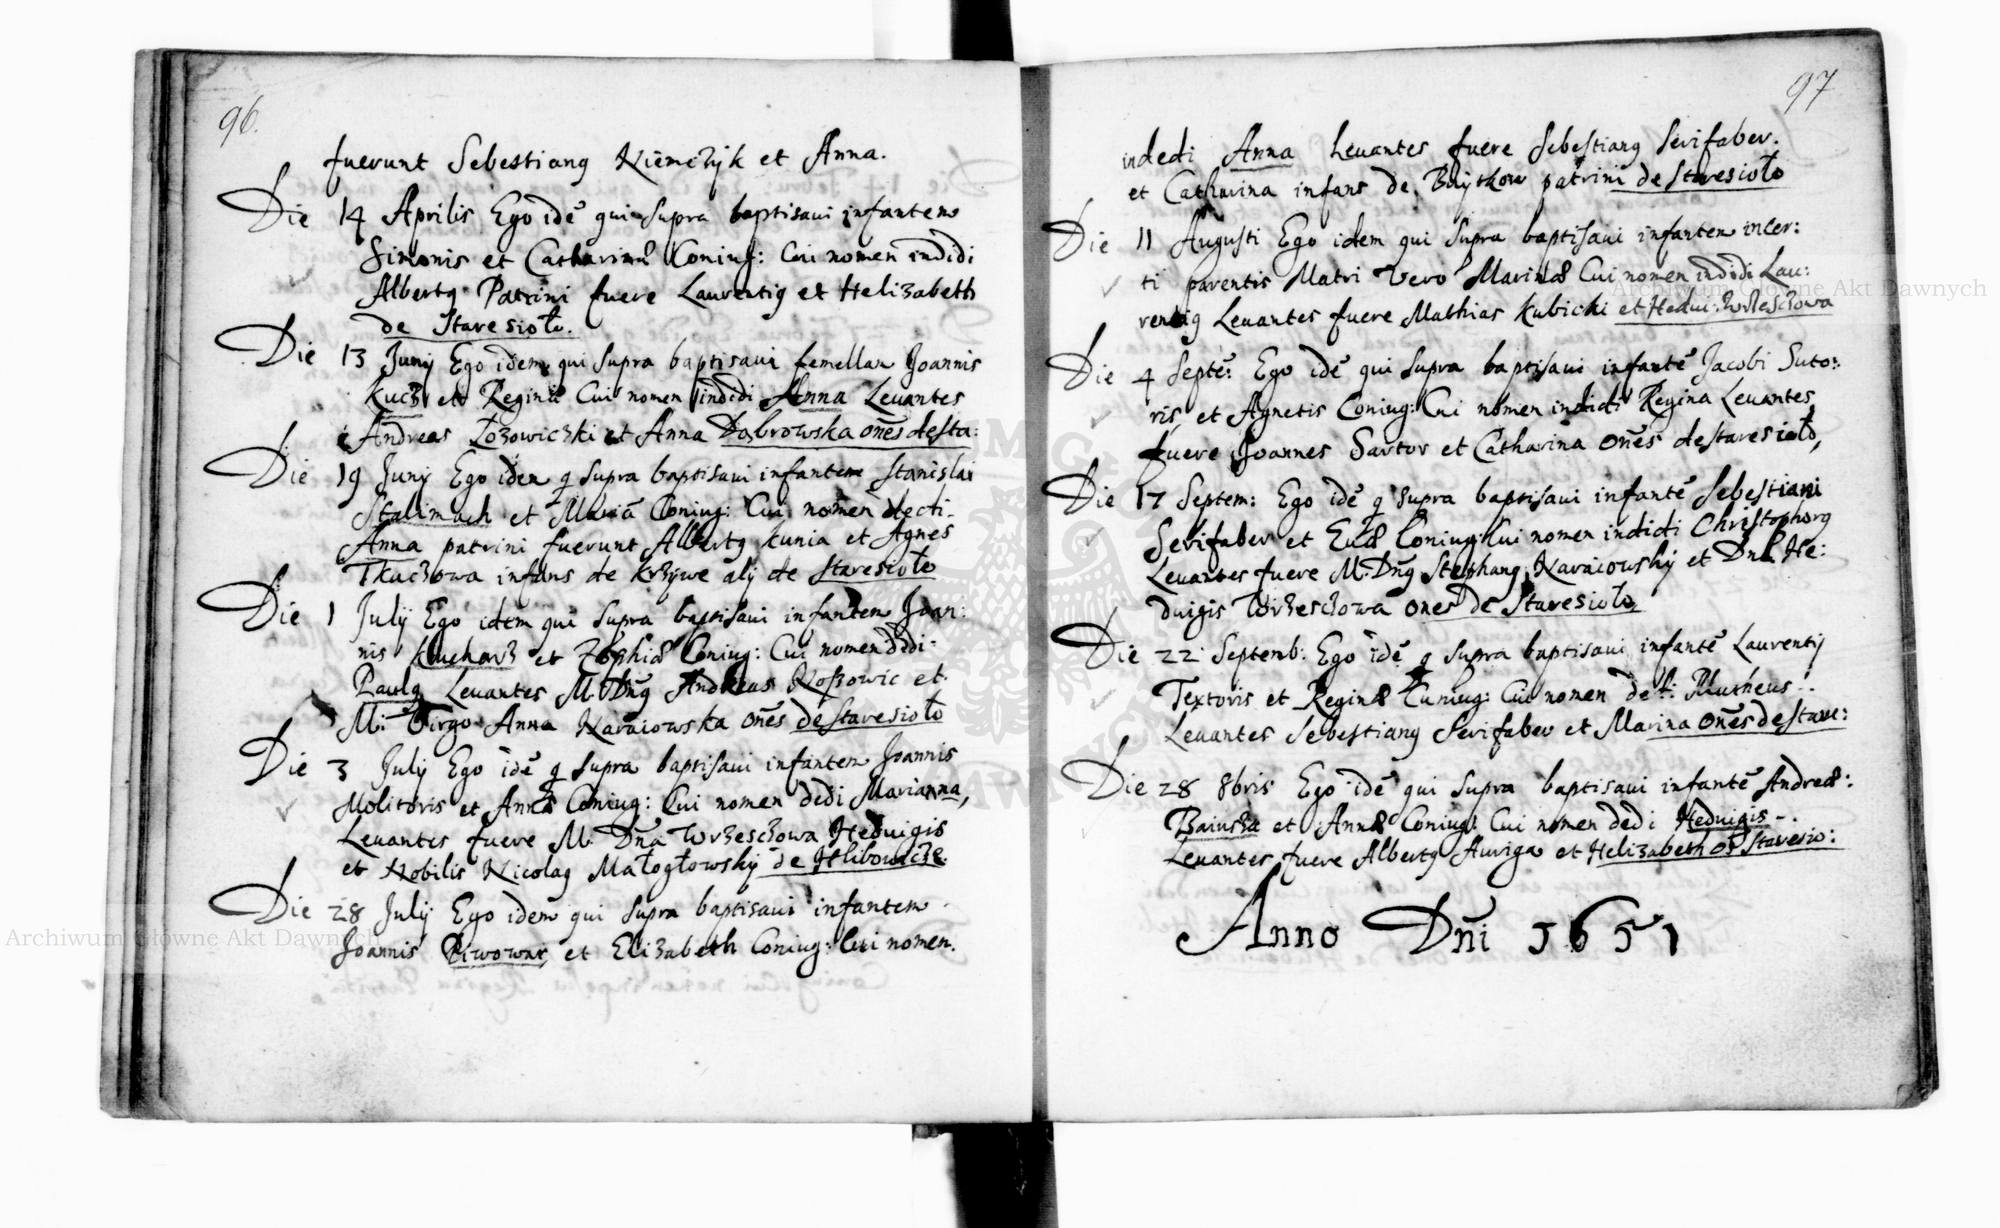 96.
fuerunt Sebestiang Niemczyk et Anna.
Die 14 Aprilis Ego idē qui supra baptisaui infantem
Simonis et Catharinæ Coniug: Cui nomen indidi
Albertg Patrini fuere Laurentig et Helizabeth
de Staresioło.
Die 13 Junij Ego idem qui supra baptisaui femellam Joannis
Kucz et Reginæ Cui nomen indidi Anna Leuantes
Andreas Łozowiczki et Anna Dąbrowska onēs de Sta:
Die 19 Junij Ego idem q supra baptisaui infantem Stanislai
Stalmach et Coniug: Cui nomen
Anna patrini fuerunt Albertg Kunia et Agnes
Tkaczowa infans de Krzywe alij de Staresioło
Die 1 Julij Ego idem qui supra baptisaui infantem Joan:
nis Kucharz et Zophiæ Coniug: Cui nomen dedi
Paulg Leuantes M. Dn̄g Andreas et
M: Virgo Anna Karaiowska onēs de Staresioło
Die 3 Julij Ego idē q supra baptisaui infantem Joannis
Molitoris et Annæ Coniug: Cui nomen dedi Marianna,
Leuantes fuere M. Dn̄a Wrzeszczowa Heduigis
et Nobilis Nicolag Małogłowskij de Hlibowicze
Die 28 Julij Ego idem qui supra baptisaui infantem
Joannis Piwowar, et Elizabeth Coniug: Cui nomen.
97
indedi Anna Leuantes fuere Sebestiang Serifaber.
et Catharina infans de patrini de Staresioło
Die 11 Augusti Ego idem qui supra baptisaui infantem incer:
ti parentis Matri Vero Marinæ Cui nomen indidi Lau:
rentig Leuantes fuere Mathias Kubicki et Hedui: Wrzeszczowa
Die 4 Septē: Ego idē qui supra baptisaui infantē Jacobi Suto:
ris, et Agnetis Coniug: Cui nomen indidi Regina Leuantes
fuere Joannes Sartor et Catharina onēs de Staresioło,
Die 17 Septem: Ego idē q supra baptisaui infantē Sebestiani
Serifaber et Euæ Coniug: Cui nomen indidi Christophorg
Leuantes fuere M. Dn̄g Stephang Karaiowskij et Dnā He:
duigis Wrzeszczowa ones de Staresioło
Die 22 Septemb: Ego idē q supra baptisaui infantē Laurentij
Textoris et Reginæ Cuniug: Cui nomen Matheus
Leuantes Sebestiang Serifaber et Marina onēs de Stare:
Die 28 8bris Ego idē qui supra baptisaui infantē Andreæ:
et Annæ Coniug: Cui nomen dedi Heduigis -.
Leuantes fuere Albertg Auriga et Helizabeth Staresio:
Anno Dn̄i 1651
Archiwum Główne Akt Dawnych
Archiwum Główne Akt Dawnych